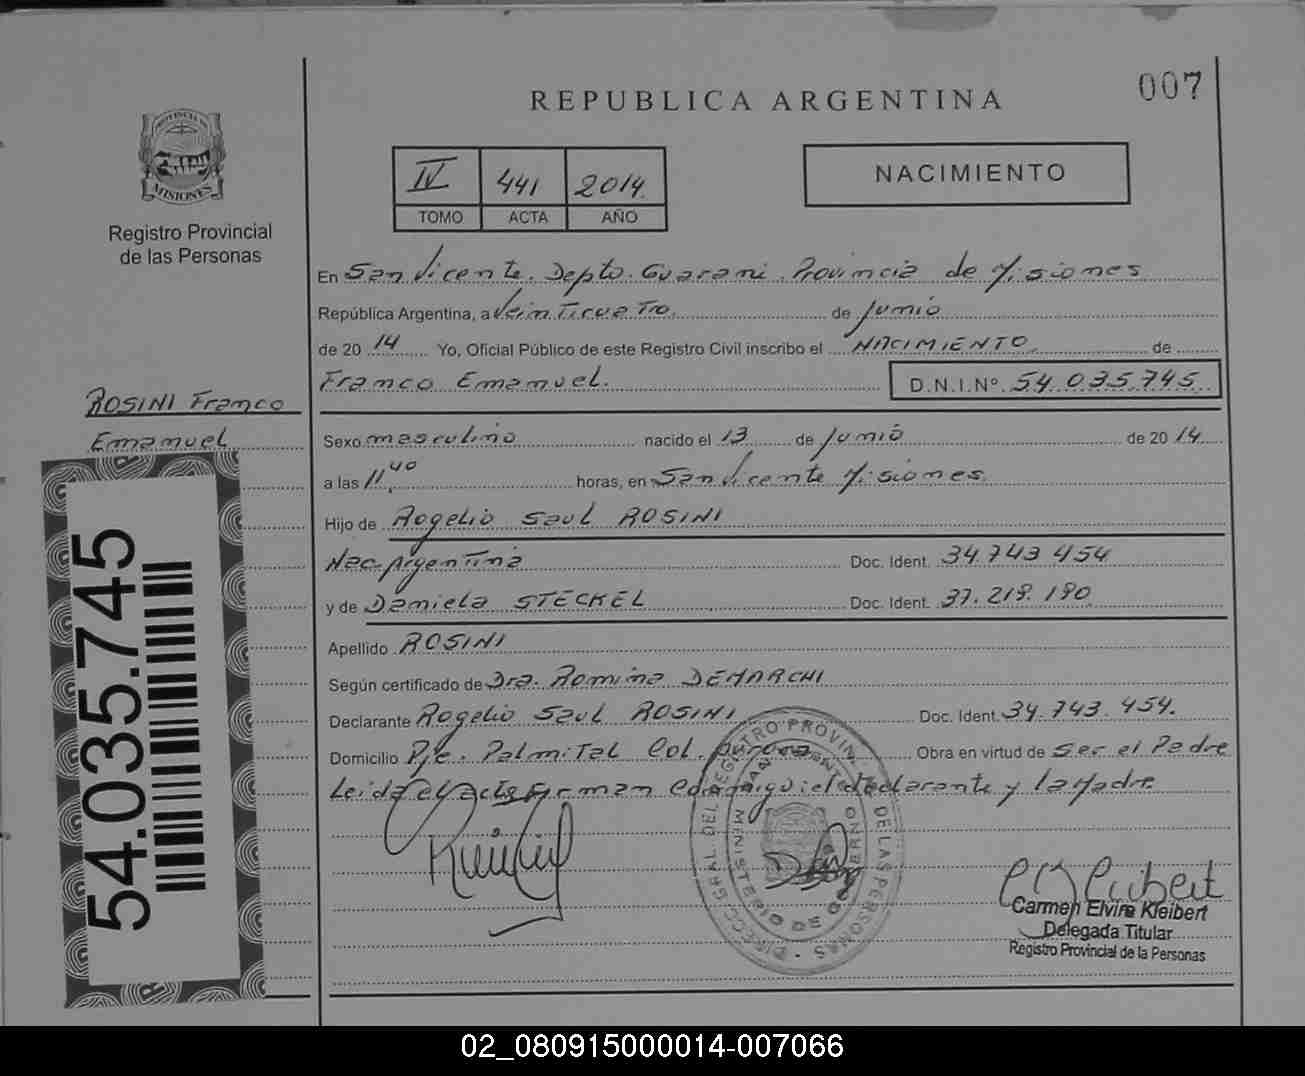 007
REPUBLICA ARGENTINA
PROVINCIA DE
MISIONES
Registro Provincial
de las Personas
IV 441 2014
TOMO ACTA AÑO
NACIMIENTO
En San Vicente. Depto. Guarani. Provincia de Misiones
República Argentina, a Veinticuatro. de Junio
de 20 14 Yo, Oficial Público de este Registro Civil inscribo el NACIMIENTO de
Franco Emanuel. D.N.I.Nº. 54.035.745
ROSINI Franco
Emanuel
Sexo masculino nacido el 13 de Junio de 20 14
a las 11,40 horas, en San Vicente Misiones
Hijo de Rogelio Saul ROSINI
Nac. Argentina Doc. Ident. 34.743 454
y de Daniela STECKEL Doc. Ident. 37.219.190
Apellido ROSINI
Según certificado de Dra. Romina DEMARCHI
Declarante Rogelio Saul ROSINI Doc. Ident. 34.743.454.
Domicilio Pje. Palmital Col. Obra en virtud de ser el Padre
Leida el acta firman declarante y la Madre
54.035.745
DIRECC. GRAL. DEL REGISTRO PROVIN. DE LAS PERSONAS
SAN VICENTE
MINISTERIO DE GOBIERNO
Carmen Elvira Kleibert
Delegada Titular
Registro Provincial de la Personas
02_080915000014-007066